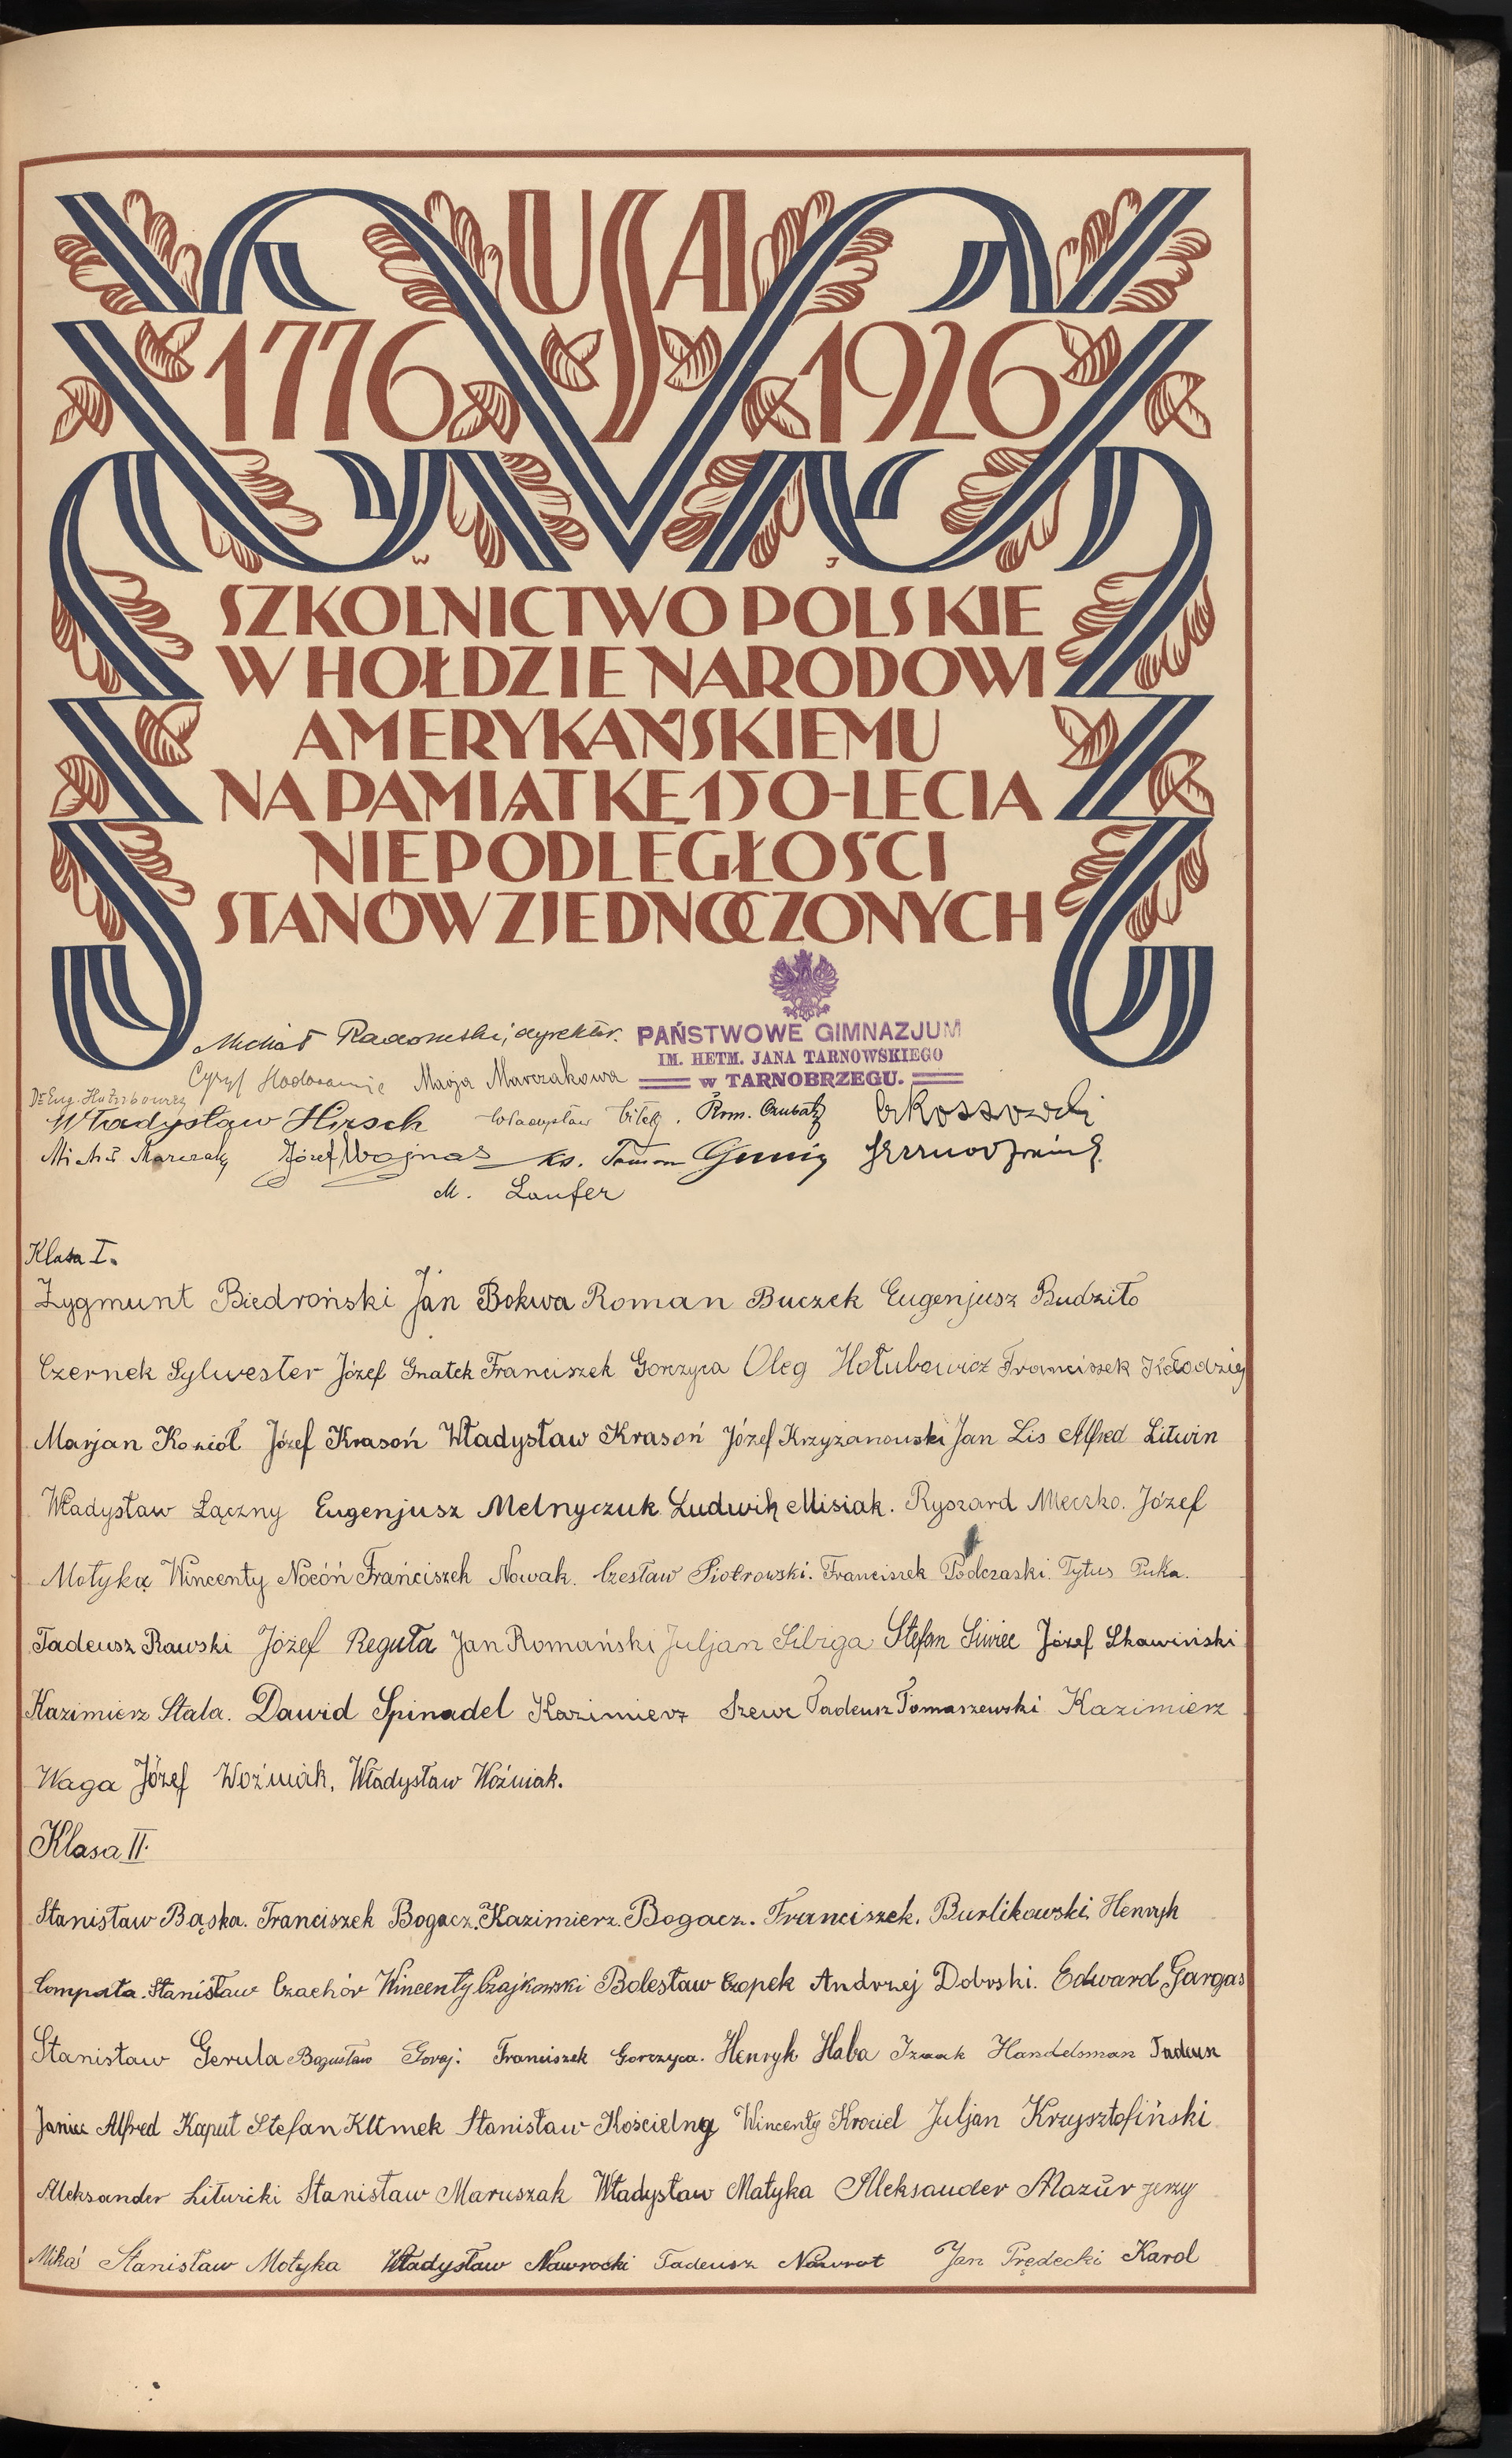 USA
1776 1926
W J
SZKOLNICTWO POLSKIE
W HOŁDZIE NARODOWI
AMERYKAŃSKIEMU
NA PAMIĄTKĘ 150-LECIA
NIEPODLEGŁOŚCI
STANÓW ZJEDNOCZONYCH
PAŃSTWOWE GIMNAZJUM
IM. HETM. JANA TARNOWSKIEGO
w TARNOBRZEGU.
Michał Radomski, dyrektor.
Cyryl Marja Marczakowa
Dr Eug.
Władysław Hirsch Władysław Rom. Czubaty
Michał Marczak Józef Wojnas ks.
M. Laufer
Klasa I.
Zygmunt Biedroński Jan Bokwa Roman Buczek Eugenjusz Budziło
Czernek Sylwester Józef Gnatek Franciszek Gorczyca Oleg Hołubowicz Franciszek Kołodziej
Marjan Kozioł Józef Krasoń Władysław Krasoń Józef Krzyżanowski Jan Lis Alfred Litwin
Władysław Łączny Eugenjusz Melnyczuk Ludwik Misiak. Ryszard Mleczko. Józef
Motyka Wincenty Nocóń Franciszek Nowak. Czesław Piotrowski. Franciszek Podczaski. Tytus Puka.
Tadeusz Rawski Józef Reguła Jan Romański Juljan Sibiga Stefan Siwiec Józef Skawiński
Kazimierz Stala. Dawid Spinadel Kazimierz Szewc Tadeusz Tomaszewski Kazimierz
Waga Józef Woźniak, Władysław Woźniak.
Klasa II.
Stanisław Bąska. Franciszek Bogacz. Kazimierz. Bogacz. Franciszek. Burlikowski Henryk
Compała. Stanisław Czachór Wincenty Czajkowski Bolesław Czopek Andrzej Dobrski. Edward Gargas
Stanisław Gerula Bogusław Goraj. Franciszek Gorczyca. Henryk Haba Izaak Handelsman Tadeusz
Janiec Alfred Kaput Stefan Klimek Stanisław Kościelny Wincenty Krociel Juljan Krzysztofiński
Aleksander Liturcki Stanisław Maruszak Władysław Matyka Aleksander Mazūr Jerzy
Mikoś Stanisław Motyka Władysław Nawrocki Tadeusz Nawrot Jan Prędecki Karol